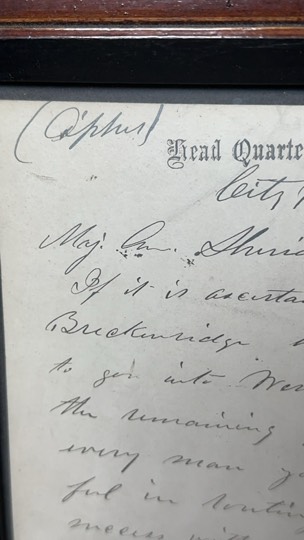 (Cipher)
Head Quarte
City P
Maj. Gen. Sherid
If it is ascerta
Breckenridge
to go into Wes
the remaining
every man yo
ful in
success with